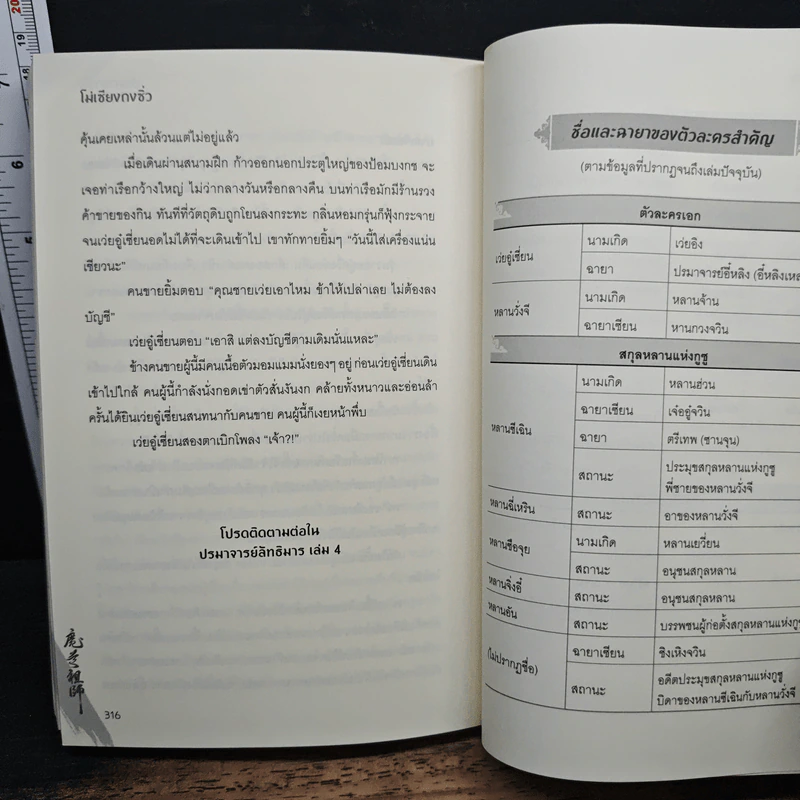 โม่เซียงถงซิ่ว
คุ้นเคยเหล่านั้นล้วนแต่ไม่อยู่แล้ว
เมื่อเดินผ่านสนามฝึก ก้าวออกนอกประตูใหญ่ของป้อมบงกช จะ
เจอท่าเรือกว้างใหญ่ ไม่ว่ากลางวันหรือกลางคืน บนท่าเรือมักมีร้านรวง
ค้าขายของกิน ทันทีที่วัตถุดิบถูกโยนลงกระทะ กลิ่นหอมกรุ่นก็ฟุ้งกระจาย
จนเว่ยอู๋เซี่ยนอดไม่ได้ที่จะเดินเข้าไป เขาทักทายยิ้มๆ "วันนี้ใส่เครื่องแน่น
เชียวนะ"
คนขายยิ้มตอบ "คุณชายเว่ยเอาไหม ข้าให้เปล่าเลย ไม่ต้องลง
บัญชี"
เว่ยอู๋เซี่ยนตอบ "เอาสิ แต่ลงบัญชีตามเดิมนั่นแหละ"
ข้างคนขายผู้นี้มีคนเนื้อตัวมอมแมมนั่งยองๆ อยู่ ก่อนเว่ยอู๋เซี่ยนเดิน
เข้าไปใกล้ คนผู้นี้กำลังนั่งกอดเข่าตัวสั่นงันงก คล้ายทั้งหนาวและอ่อนล้า
ครั้นได้ยินเว่ยอู๋เซี่ยนสนทนากับคนขาย คนผู้นี้ก็เงยหน้าพึ่บ
เว่ยอู๋เซี่ยนสองตาเบิกโพลง "เจ้า?!"
โปรดติดตามต่อใน
ปรมาจารย์ลัทธิมาร เล่ม 4
魔道祖師
316
ชื่อและฉายาของตัวละครสำคัญ
(ตามข้อมูลที่ปรากฏจนถึงเล่มปัจจุบัน)
ตัวละครเอก
เว่ยอู๋เซี่ยน นามเกิด เว่ยอิง
ฉายา ปรมาจารย์อี๋หลิง (อี๋หลิงเหล
หลานวั่งจี นามเกิด หลานจ้าน
ฉายาเซียน หานกวงจวิน
สกุลหลานแห่งกูซู
หลานซีเฉิน นามเกิด หลานฮ่วน
ฉายาเซียน เจ๋ออู๋จวิน
ฉายา ตรีเทพ (ซานจุน)
สถานะ ประมุขสกุลหลานแห่งกูซู
พี่ชายของหลานวั่งจี
หลานฉี่เหริน สถานะ อาของหลานวั่งจี
หลานซือจุย นามเกิด หลานเยวี่ยน
สถานะ อนุชนสกุลหลาน
หลานจิ่งอี๋ สถานะ อนุชนสกุลหลาน
หลานอัน สถานะ บรรพชนผู้ก่อตั้งสกุลหลานแห่งกูซู
(ไม่ปรากฏชื่อ) ฉายาเซียน ชิงเหิงจวิน
สถานะ อดีตประมุขสกุลหลานแห่งกูซู
บิดาของหลานซีเฉินกับหลานวั่งจี
7
6
20
19
18